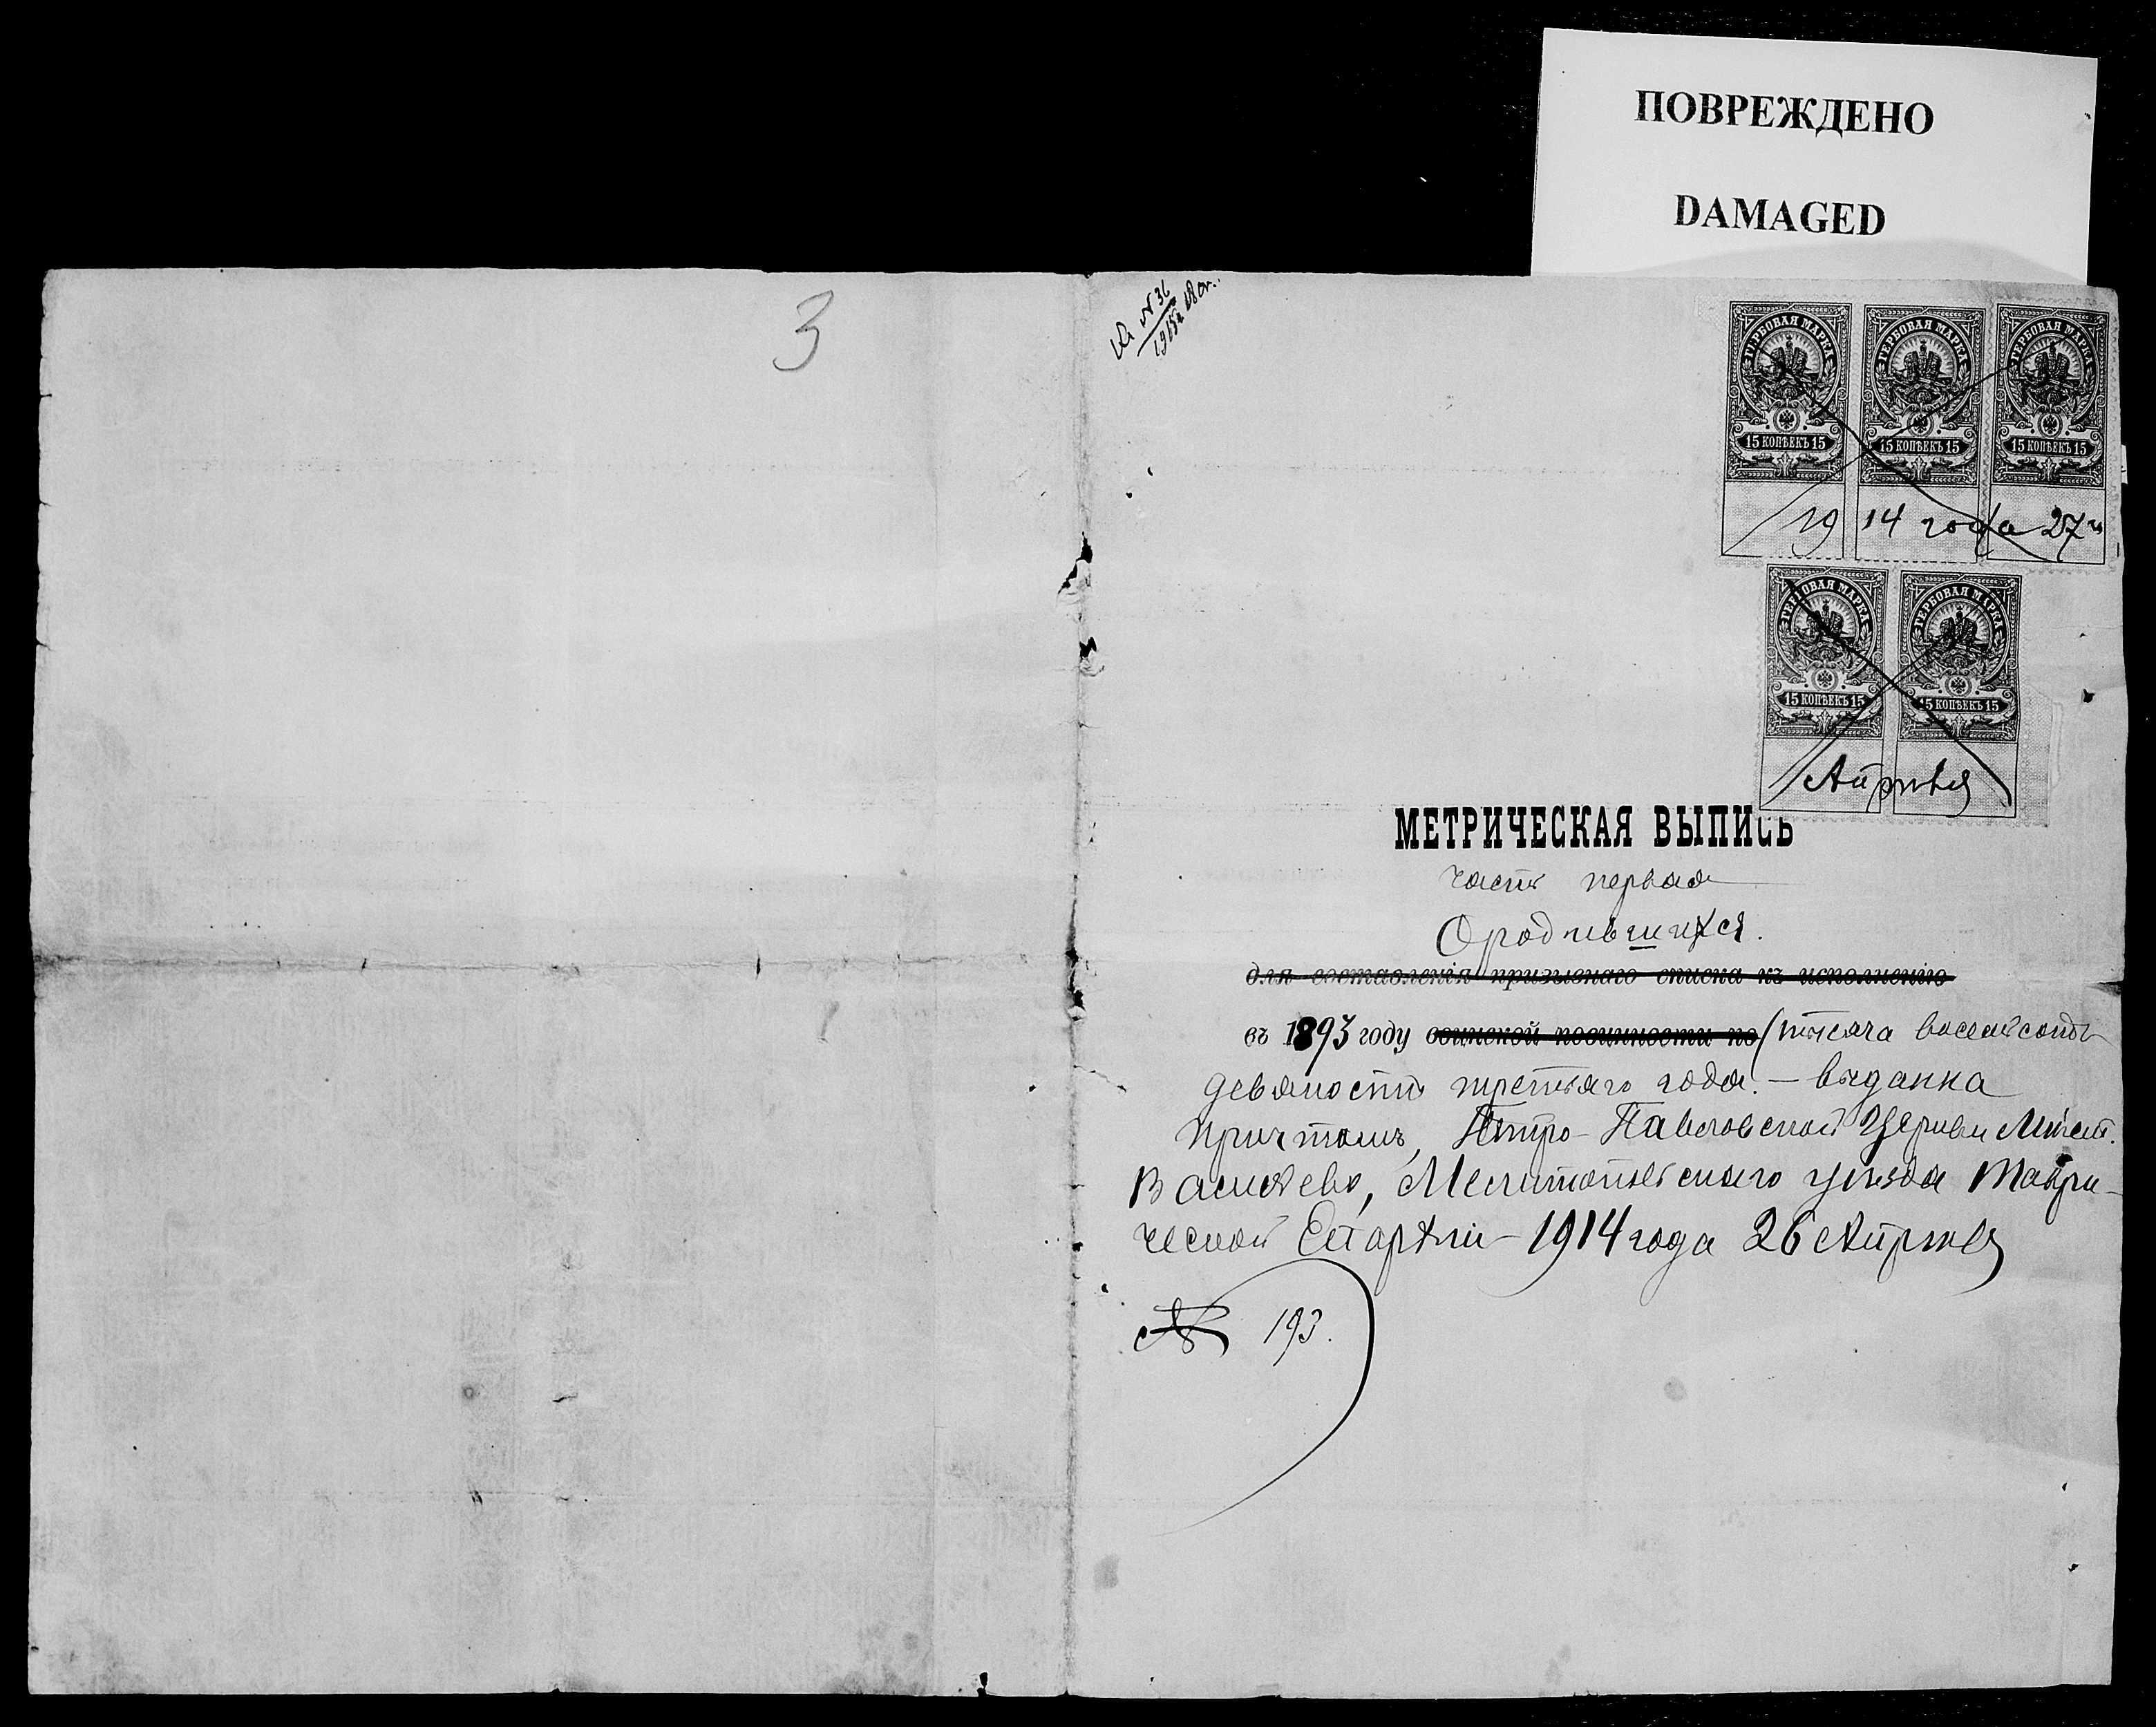 ПОВРЕЖДЕНО
DAMAGED
3
№ 36
1915 г.
ГЕРБОВАЯ МАРКА ГЕРБОВАЯ МАРКА ГЕРБОВАЯ МАРКА
15 КОПѢЕКЪ 15 15 КОПѢЕКЪ 15 15 КОПѢЕКЪ 15
1914 года 27го
ГЕРБОВАЯ МАРКА ГЕРБОВАЯ МАРКА
15 КОПѢЕКЪ 15 15 КОПѢЕКЪ 15
Апрѣля
МЕТРИЧЕСКАЯ ВЫПИСЬ
часть первая
О родившихся.
для составленія призывнаго списка къ исполненію
въ 1893 году воинской повинности по (тысяча восемьсотъ
девяносто третьяго года. – выданна
Причтомъ, Петро-Павловской Церкви Мѣст.
Васильевк, Мелитопольскаго уѣзда Таври-
ческой Епархіи – 1914 года 26 Апрѣля
№ 193.